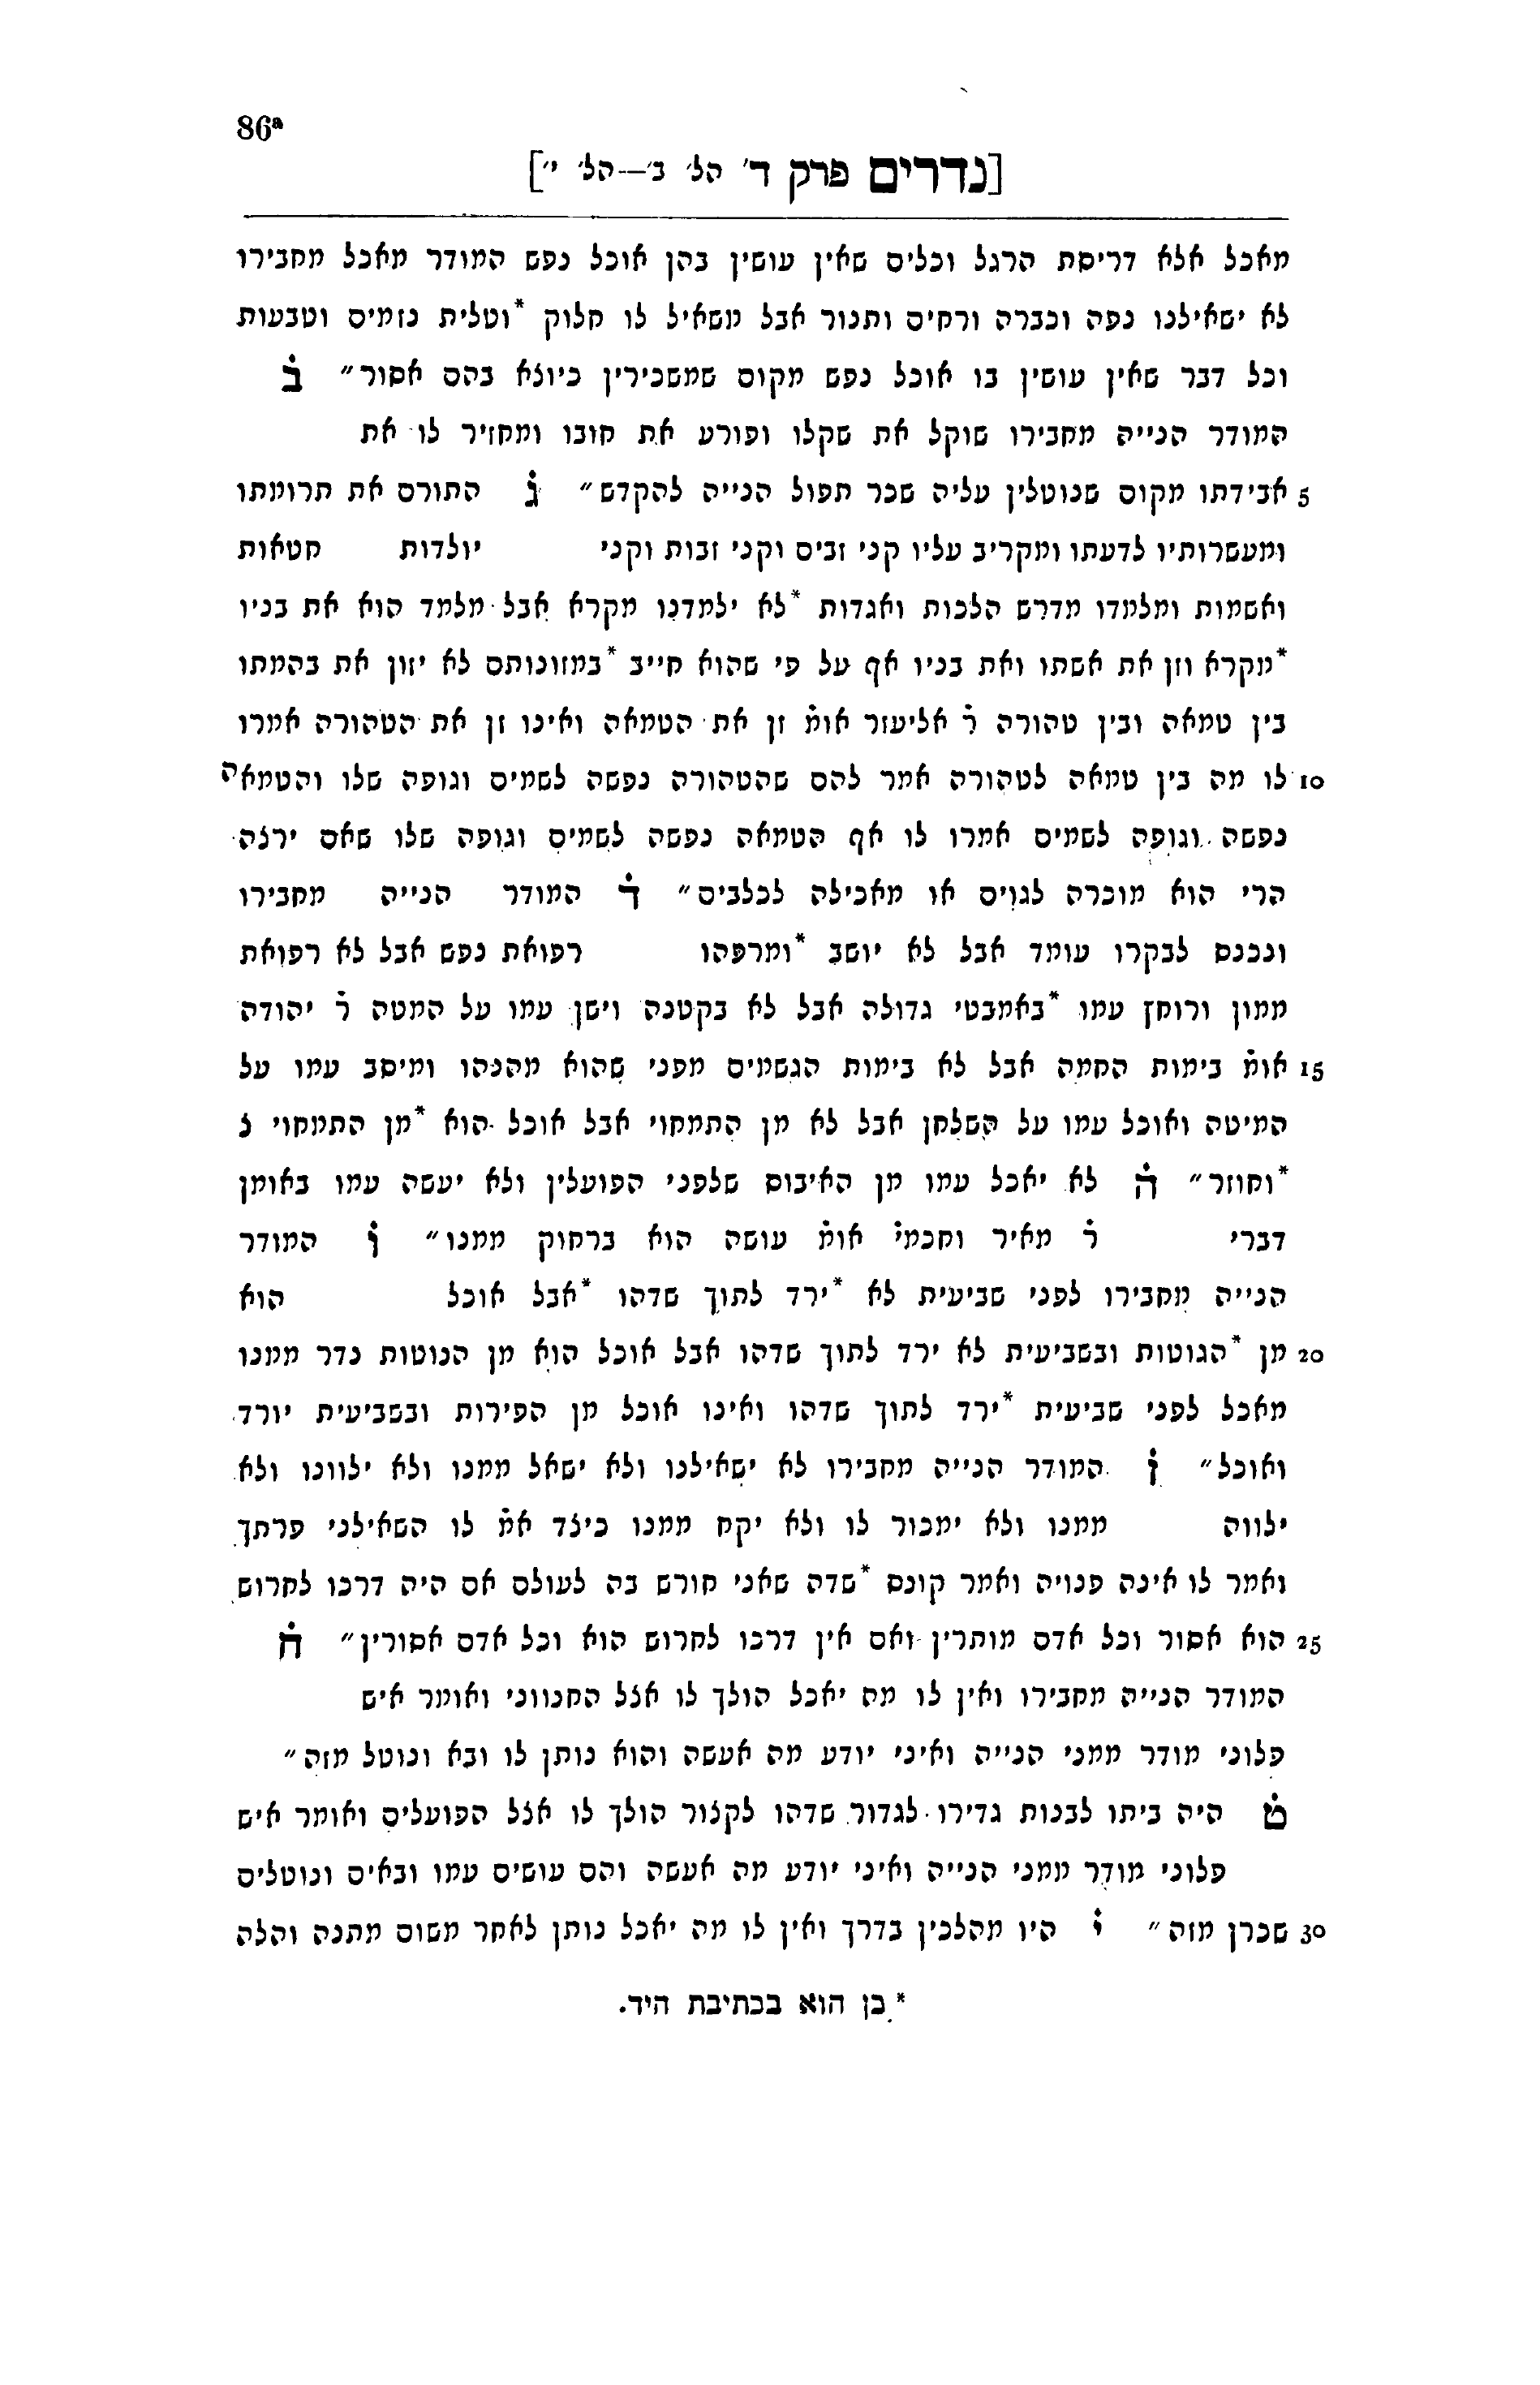 86ª
[נדרים פרק ד׳ הל׳ ב׳—הל׳ י׳]
מאכל אלא דריסת הרגל וכלים שאין עושין בהן אוכל נפש המודר מאכל מחבירו
לא ישאילנו נפה וכברה ורחים ותנור אבל משאיל לו חלוק *וטלית נזמים וטבעות
וכל דבר שאין עושין בו אוכל נפש מקום שמשכירין כיוצא בהם אסור״ ב̇
המודר הנייה מחבירו שוקל את שקלו ופורע את חובו ומחזיר לו את
5 אבידתו מקום שנוטלין עליה שכר תפול הנייה להקדש״ ג̇ התורם את תרומתו
ומעשרותיו לדעתו ומקריב עליו קני זבים וקני זבות וקני יולדות חטאות
ואשמות ומלמדו מדרש הלכות ואגדות *לא ילמדנו מקרא אבל מלמד הוא את בניו
*מקרא וזן את אשתו ואת בניו אף על פי שהוא חייב *במזונותם לא יזון את בהמתו
בין טמאה ובין טהורה ר̇ אליעזר אומ̇ זן את הטמאה ואינו זן את הטהורה אמרו
10 לו מה בין טמאה לטהורה אמר להם שהטהורה נפשה לשמים וגופה שלו והטמאה
נפשה וגופה לשמים אמרו לו אף הטמאה נפשה לשמים וגופה שלו שאם ירצה
הרי הוא מוכרה לגוים או מאכילה לכלבים״ ד̇ המודר הנייה מחבירו
ונכנס לבקרו עומד אבל לא יושב *ומרפהו רפואת נפש אבל לא רפואת
ממון ורוחץ עמו *באמבטי גדולה אבל לא בקטנה וישן עמו על המטה ר̇ יהודה
15 אומ̇ בימות החמה אבל לא בימות הגשמים מפני שהוא מהנהו ומיסב עמו על
המיטה ואוכל עמו על השלחן אבל לא מן התמחוי אבל אוכל הוא *מן התמחוי צ
*וחוזר״ ה̇ לא יאכל עמו מן האיבוס שלפני הפועלין ולא יעשה עמו באומן
דברי ר̇ מאיר וחכמי̇ אומ̇ עושה הוא ברחוק ממנו״ ו̇ המודר
הנייה מחבירו לפני שביעית לא *ירד לתוך שדהו *אבל אוכל הוא
20 מן *הגוטות ובשביעית לא ירד לתוך שדהו אבל אוכל הוא מן הנוטות נדר ממנו
מאכל לפני שביעית *ירד לתוך שדהו ואינו אוכל מן הפירות ובשביעית יורד
ואוכל״ ז̇ המודר הנייה מחבירו לא ישאילנו ולא ישאל ממנו ולא ילוונו ולא
ילווה ממנו ולא ימכור לו ולא יקח ממנו כיצד אמ̇ לו השאילני פרתך
ואמר לו אינה פנויה ואמר קונם *שדה שאני חורש בה לעולם אם היה דרכו לחרוש
25 הוא אסור וכל אדם מותרין ואם אין דרכו לחרוש הוא וכל אדם אסורין״ ח̇
המודר הנייה מחבירו ואין לו מה יאכל הולך לו אצל החנווני ואומר איש
פלוני מודר ממני הנייה ואיני יודע מה אעשה והוא נותן לו ובא ונוטל מזה״
ט̇ היה ביתו לבנות גדירו לגדור שדהו לקצור הולך לו אצל הפועלים ואומר איש
פלוני מודר ממני הנייה ואיני יודע מה אעשה והם עושים עמו ובאים ונוטלים
30 שכרן מזה״ י̇ היו מהלכין בדרך ואין לו מה יאכל נותן לאחר משום מתנה והלה
* כן הוא בכתיבת היד.